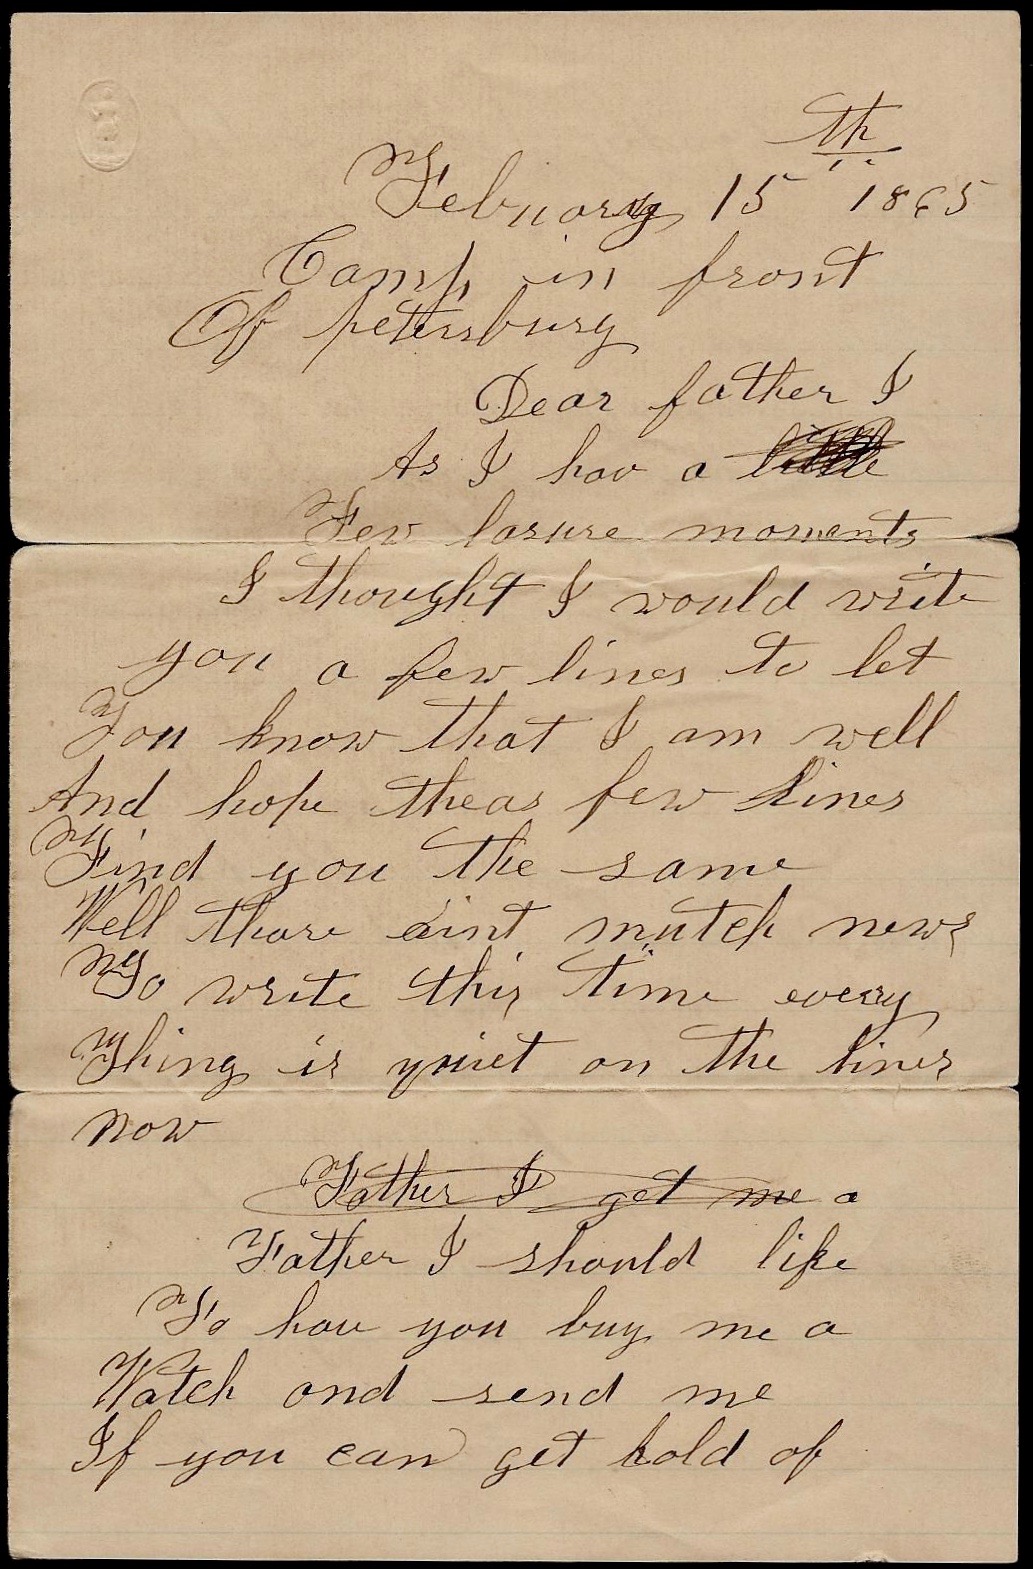 Febuary 15th 1865
Camp in front
Of petersburg
Dear father I
As I hav a little
Few lasure moments
I thought I would write
you a few lines to let
You know that I am well
And hope theas few lines
Find you the same
Well thare aint mutch news
To write this time every
Thing is quiet on the lines
now
Father I get me a
Father I should like
To hav you buy me a
Watch and send me
If you can get hold of